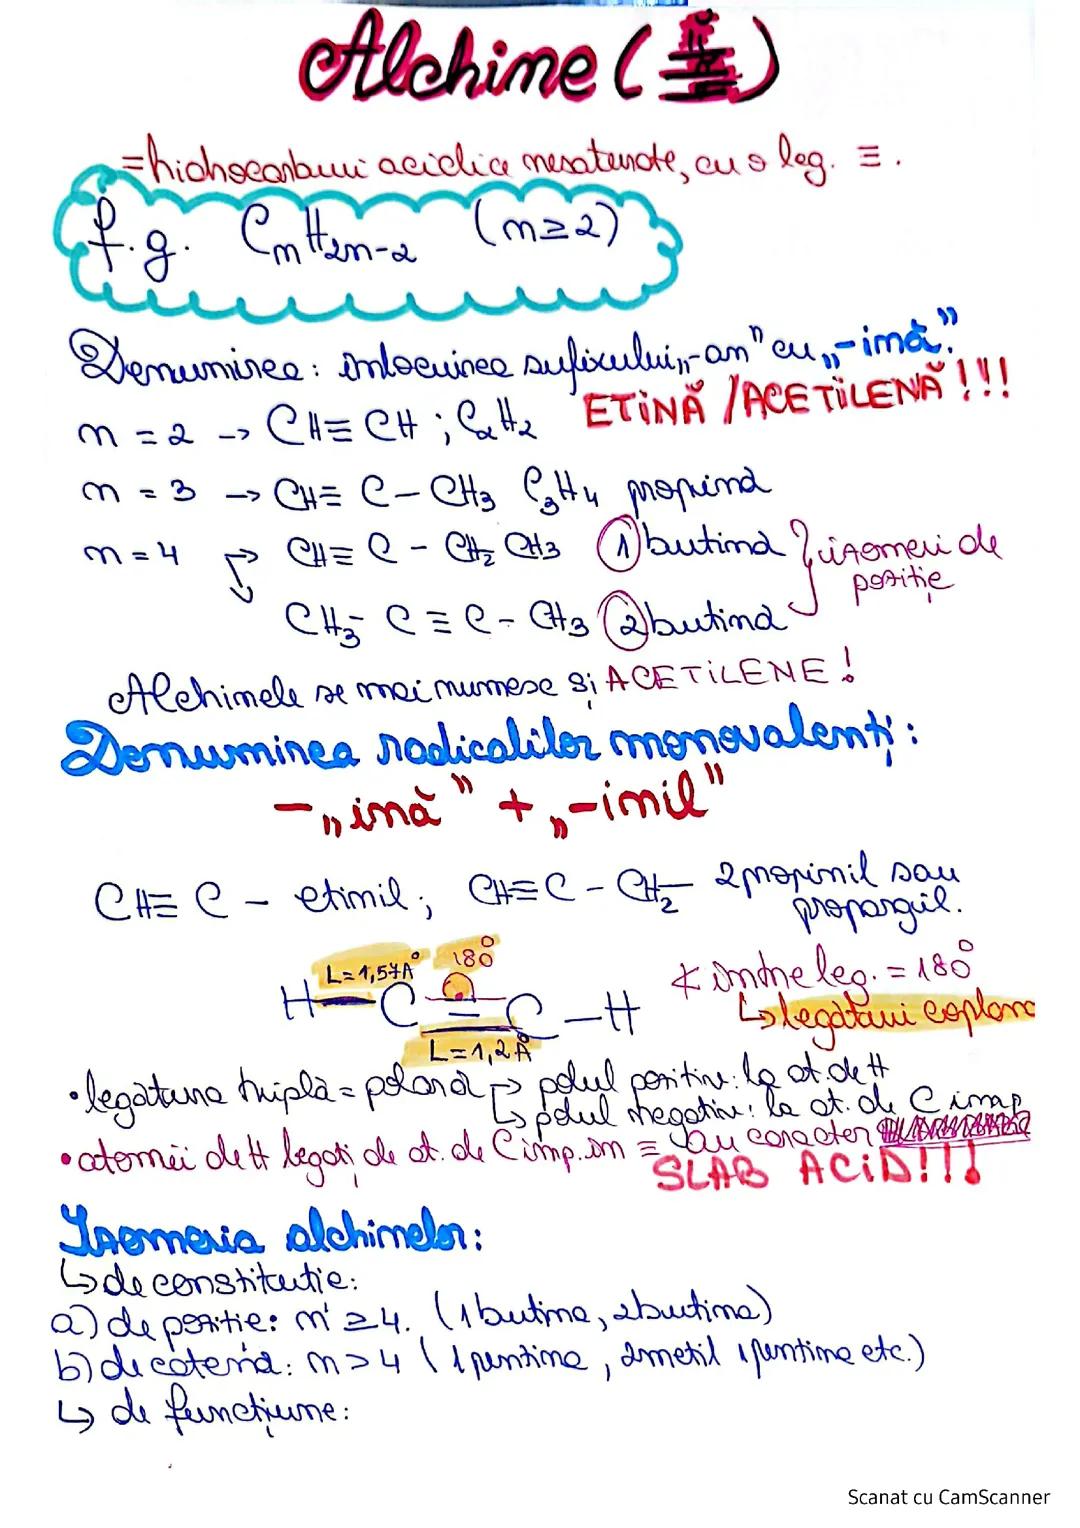 Alchine (≡)
=hidrocarburi aciclice nesaturate, cu o leg. ≡.
f.g. CnH2n-2 (n≥2)
Denumirea: înlocuirea sufixului „-an" cu „-ină."
ETINĂ /ACETILENĂ!!!
n = 2 -> CH≡CH ; C2H2
n = 3 -> CH≡C-CH3 C3H4 propină
n = 4 -> CH≡C-CH2 CH3 1 butină } izomeri de poziție
CH3-C≡C-CH3 2 butină
Alchinele se mai numesc și ACETILENE!
Denumirea radicalilor monovalenți:
-„ină" + „-inil"
CH≡C- etinil; CH≡C-CH2- 2propinil sau propargil.
L=1,57Å 180°
H-C≡C-H
L=1,2Å
∢ între leg. = 180°
↳legături coplana
•legătura triplă = polară → polul pozitiv: la at. de H
↳ polul negativ: la at. de C imp
•atomii de H legați de at. de C imp. în ≡ au caracter
SLAB ACID!!!
Izomeria alchinelor:
↳de constituție:
a) de poziție: n ≥4. (1butina, 2butina)
b) de catenă: n>4 (1 pentina, 2metil 1pentina etc.)
↳ de funcțiune:
Scanat cu CamScanner